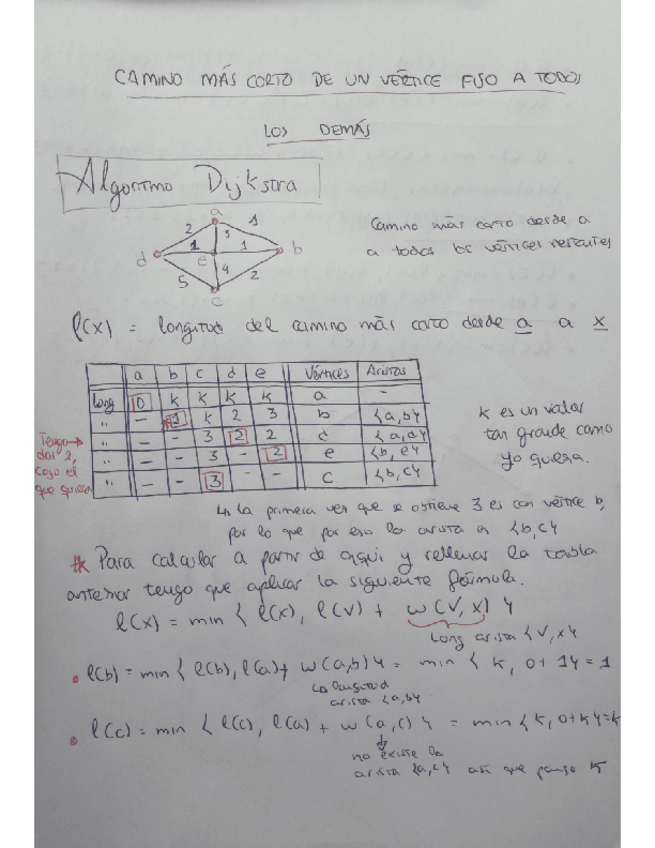 CAMINO MÁS CORTO DE UN VÉRTICE FIJO A TODOS
LOS DEMÁS
Algoritmo Dijkstra
a
2 3 1
d 1 e 1 b
5 4 2
c
Camino más corto desde a
a todos los vértices restantes
l(x) = longitud del camino más corto desde a a x
a b c d e Vértices Aristas
Long 0 k k k k a -
" - 1 k 2 3 b {a,b}
" - - 3 2 2 d {a,d}
" - - 3 - 2 e {b,e}
" - - 3 - - c {b,c}
Tengo
dos 2,
cojo el
que quiera
k es un valor
tan grande como
yo quiera.
↳ La primera vez que se obtiene 3 es con vértice b,
por lo que por eso la arista es {b,c}
* Para calcular a partir de aquí y rellenar la tabla
anterior tengo que aplicar la siguiente fórmula.
l(x) = min { l(x), l(v) + w(v,x) }
long arista {v,x}
• l(b) = min { l(b), l(a) + w(a,b) } = min { k, 0+1} = 1
↳ longitud
arista {a,b}
• l(c) = min { l(c), l(a) + w(a,c) } = min { k, 0+k} = k
↓
no existe la
arista {a,c} así que pongo k